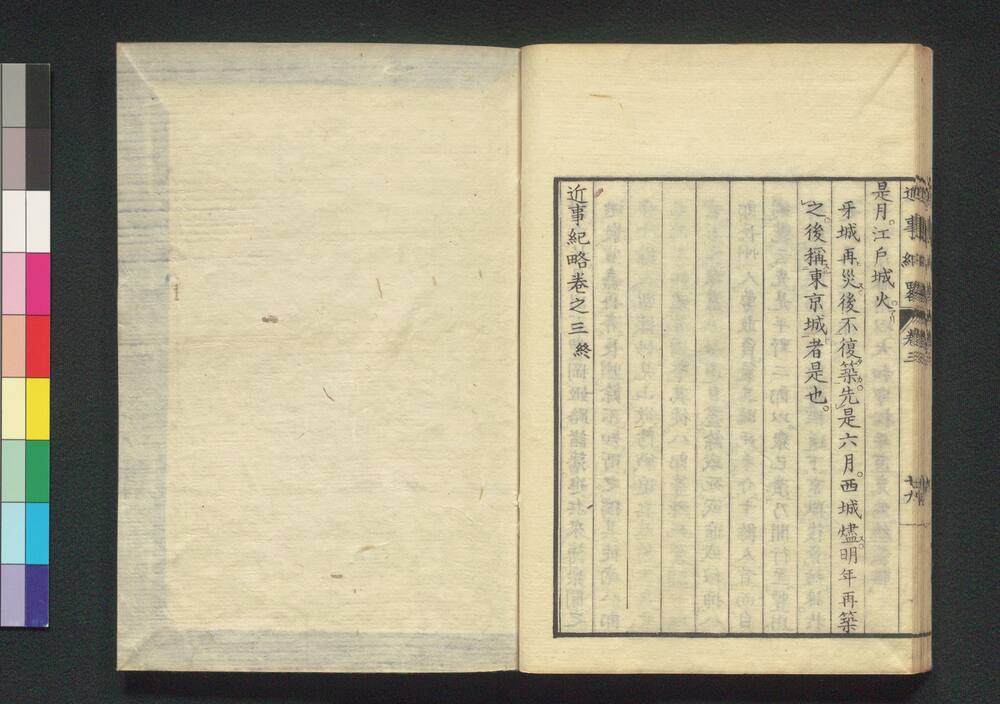 近事紀畧 卷三
是月。江戸城火。
牙城再災後不復築。先是六月。西城燼。明年再築
之。後稱東京城者是也。
近事紀略卷之三終